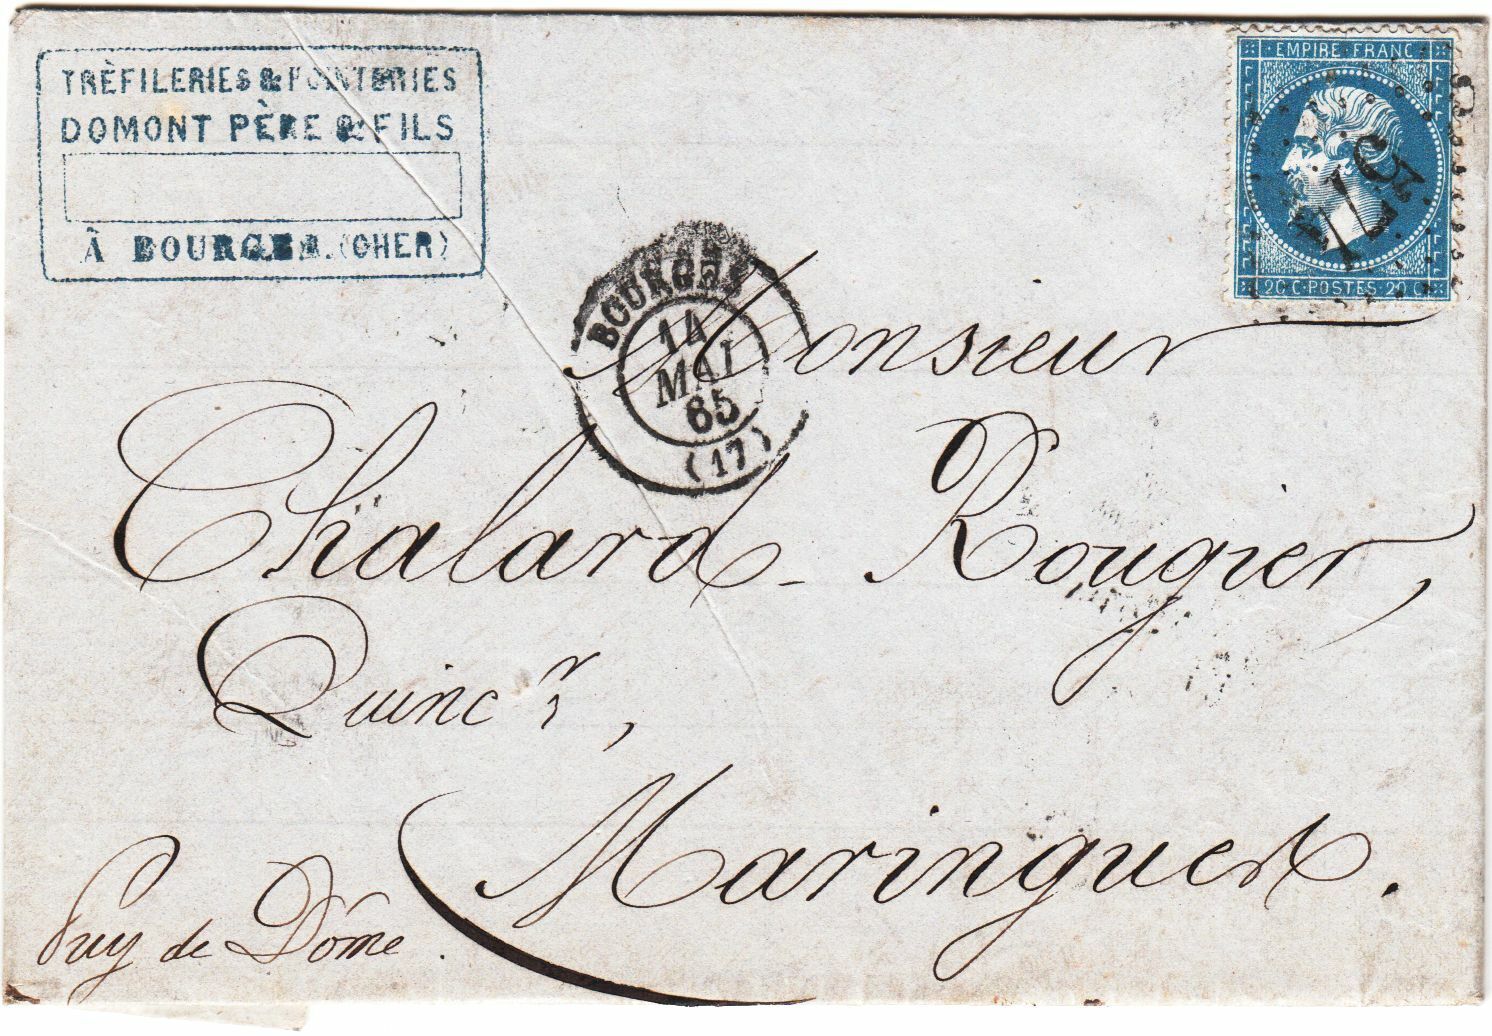 TRÈFILERIES & POINTERIES
DOMONT PÈRE & FILS
À BOURGES. (CHER)
EMPIRE FRANC
20 C. POSTES 20 C.
BOURGES
14
MAI
65
(17)
Monsieur
Chalard-Rougier,
Quinc r,
Maringues.
Puy de Dôme.